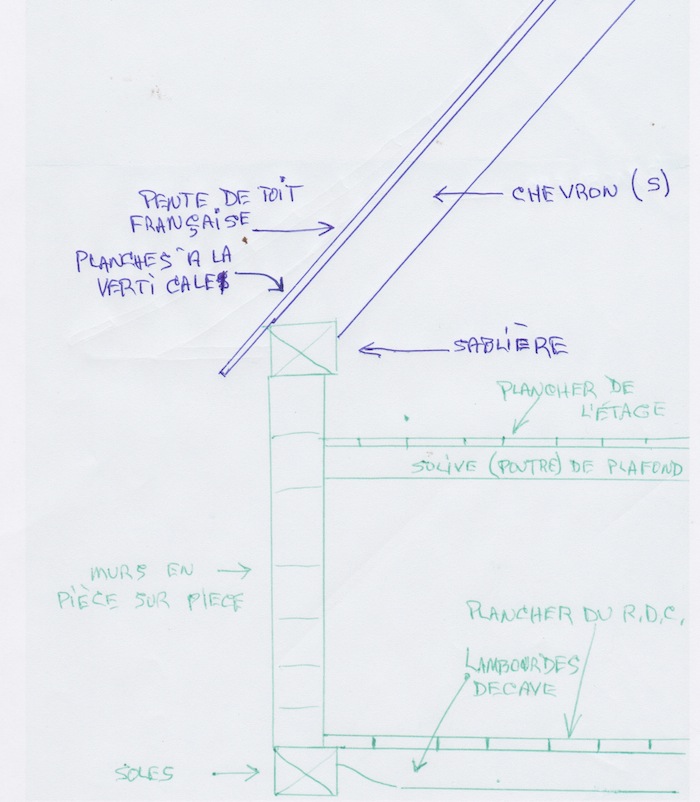 PENTE DE TOIT
FRANÇAISE
PLANCHES À LA
VERTICALE
CHEVRON (S)
SABLIÈRE
PLANCHER DE
L'ÉTAGE
SOLIVE (POUTRE) DE PLAFOND
MURS EN
PIÈCE SUR PIECE
PLANCHER DU R.D.C.
LAMBOURDES
DE CAVE
SOLES